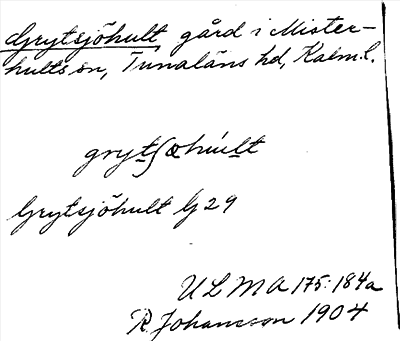 Grytsjöhult, gård i Mister-
hults sn, Tunaläns hd, Kalm. l.
grytʃøhult
Grytsjöhult G 29
ULMA 175:184a
R. Johansson 1904